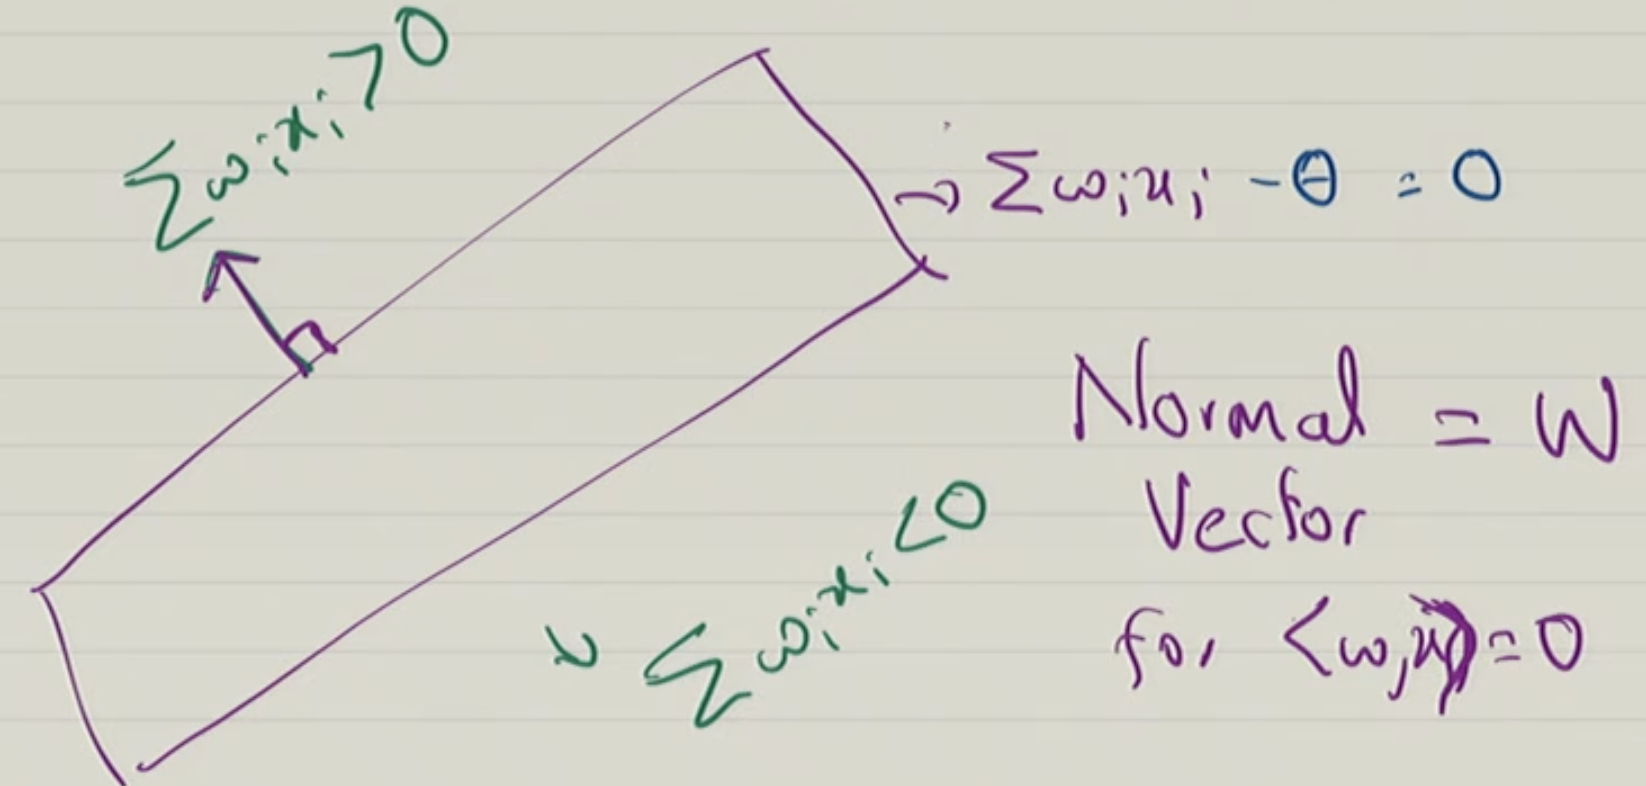 Σωᵢxᵢ > 0
→ Σωᵢxᵢ - θ = 0
Normal = W
Vector
for <ω,x> = 0
Σωᵢxᵢ < 0